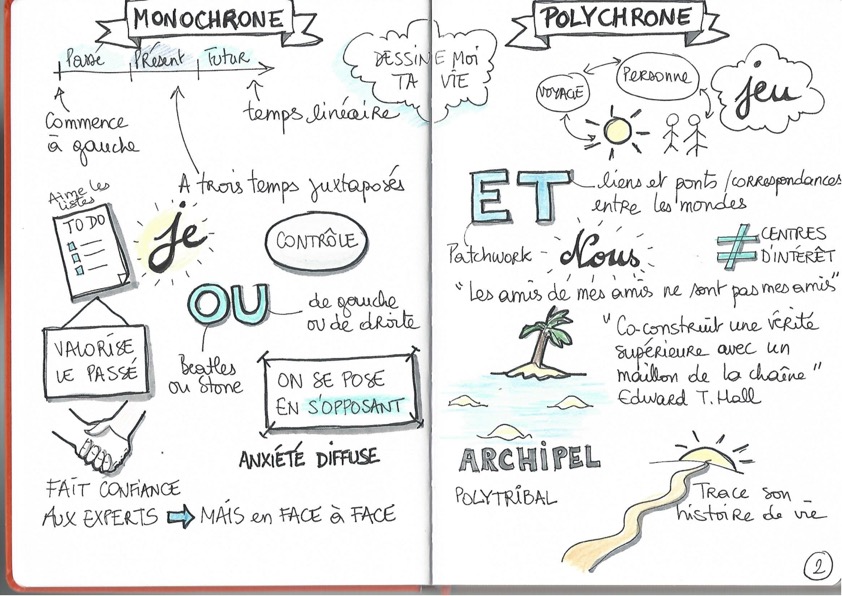 MONOCHRONE
Passé Présent Futur
Commence
à gauche
temps linéaire
A trois temps juxtaposés
Aime les
listes
TO DO
je
CONTRÔLE
OU
de gauche
ou de droite
Beatles
ou Stone
VALORISE
LE PASSÉ
ON SE POSE
EN S'OPPOSANT
ANXIÉTÉ DIFFUSE
FAIT CONFIANCE
AUX EXPERTS MAIS en FACE à FACE
DESSINE MOI
TA VIE
POLYCHRONE
VOYAGE
PERSONNE
jeu
ET
liens et ponts / correspondances
entre les mondes
Patchwork
Nous
≠ CENTRES
D'INTÉRÊT
"Les amis de mes amis ne sont pas mes amis"
"Co-construit une vérité
supérieure avec un
maillon de la chaîne"
Edward T. Hall
ARCHIPEL
POLYTRIBAL
Trace son
histoire de vie
2